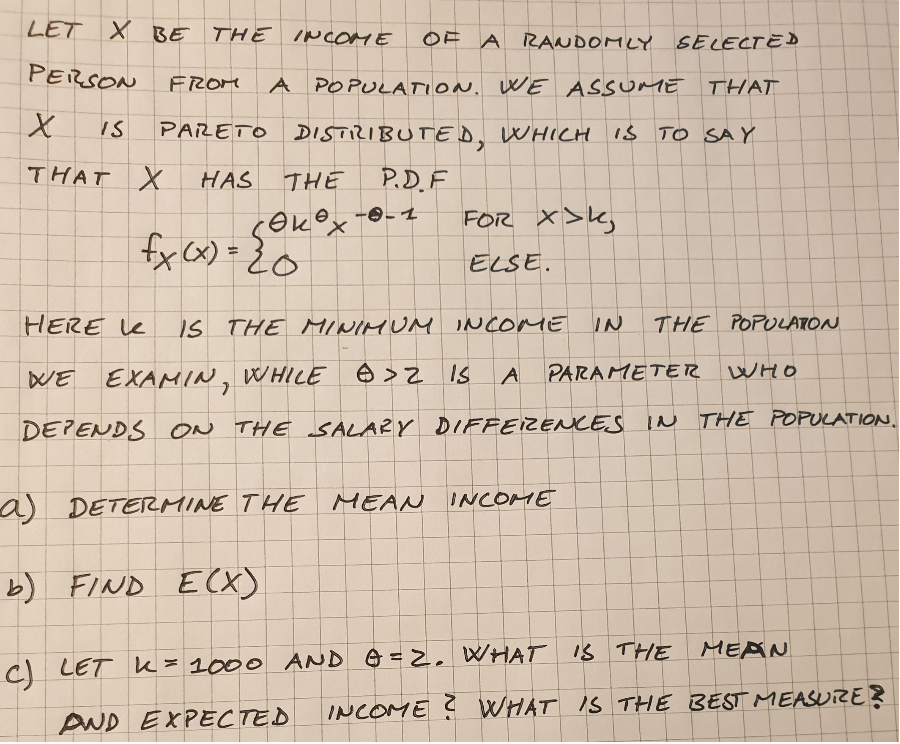 LET X BE THE INCOME OF A RANDOMLY SELECTED
PERSON FROM A POPULATION. WE ASSUME THAT
X IS PARETO DISTRIBUTED, WHICH IS TO SAY
THAT X HAS THE P.D.F
fX(x) = { θk^θx^-θ-1 FOR X>k,
0 ELSE.
HERE k IS THE MINIMUM INCOME IN THE POPULATON
WE EXAMIN, WHILE θ>2 IS A PARAMETER WHO
DEPENDS ON THE SALARY DIFFERENCES IN THE POPULATION.
a) DETERMINE THE MEAN INCOME
b) FIND E(X)
c) LET k = 1000 AND θ = 2. WHAT IS THE MEAN
AND EXPECTED INCOME? WHAT IS THE BEST MEASURE?